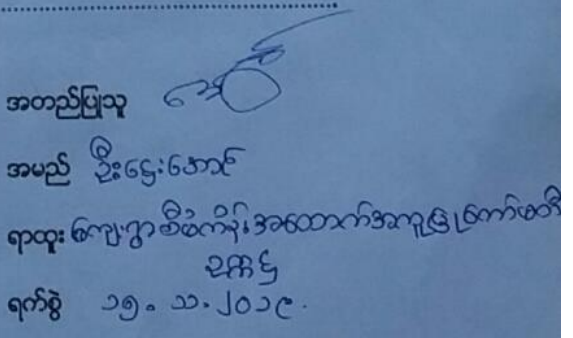 အတည်ပြုသူ
အမည် ဦးဌေးအောင်
ရာထူး ကျေးရွာစီမံကိန်းအထောက်အကူပြုကော်မတီ
ဥက္ကဋ္ဌ
ရက်စွဲ ၁၅.၁၁.၂၀၁၉.